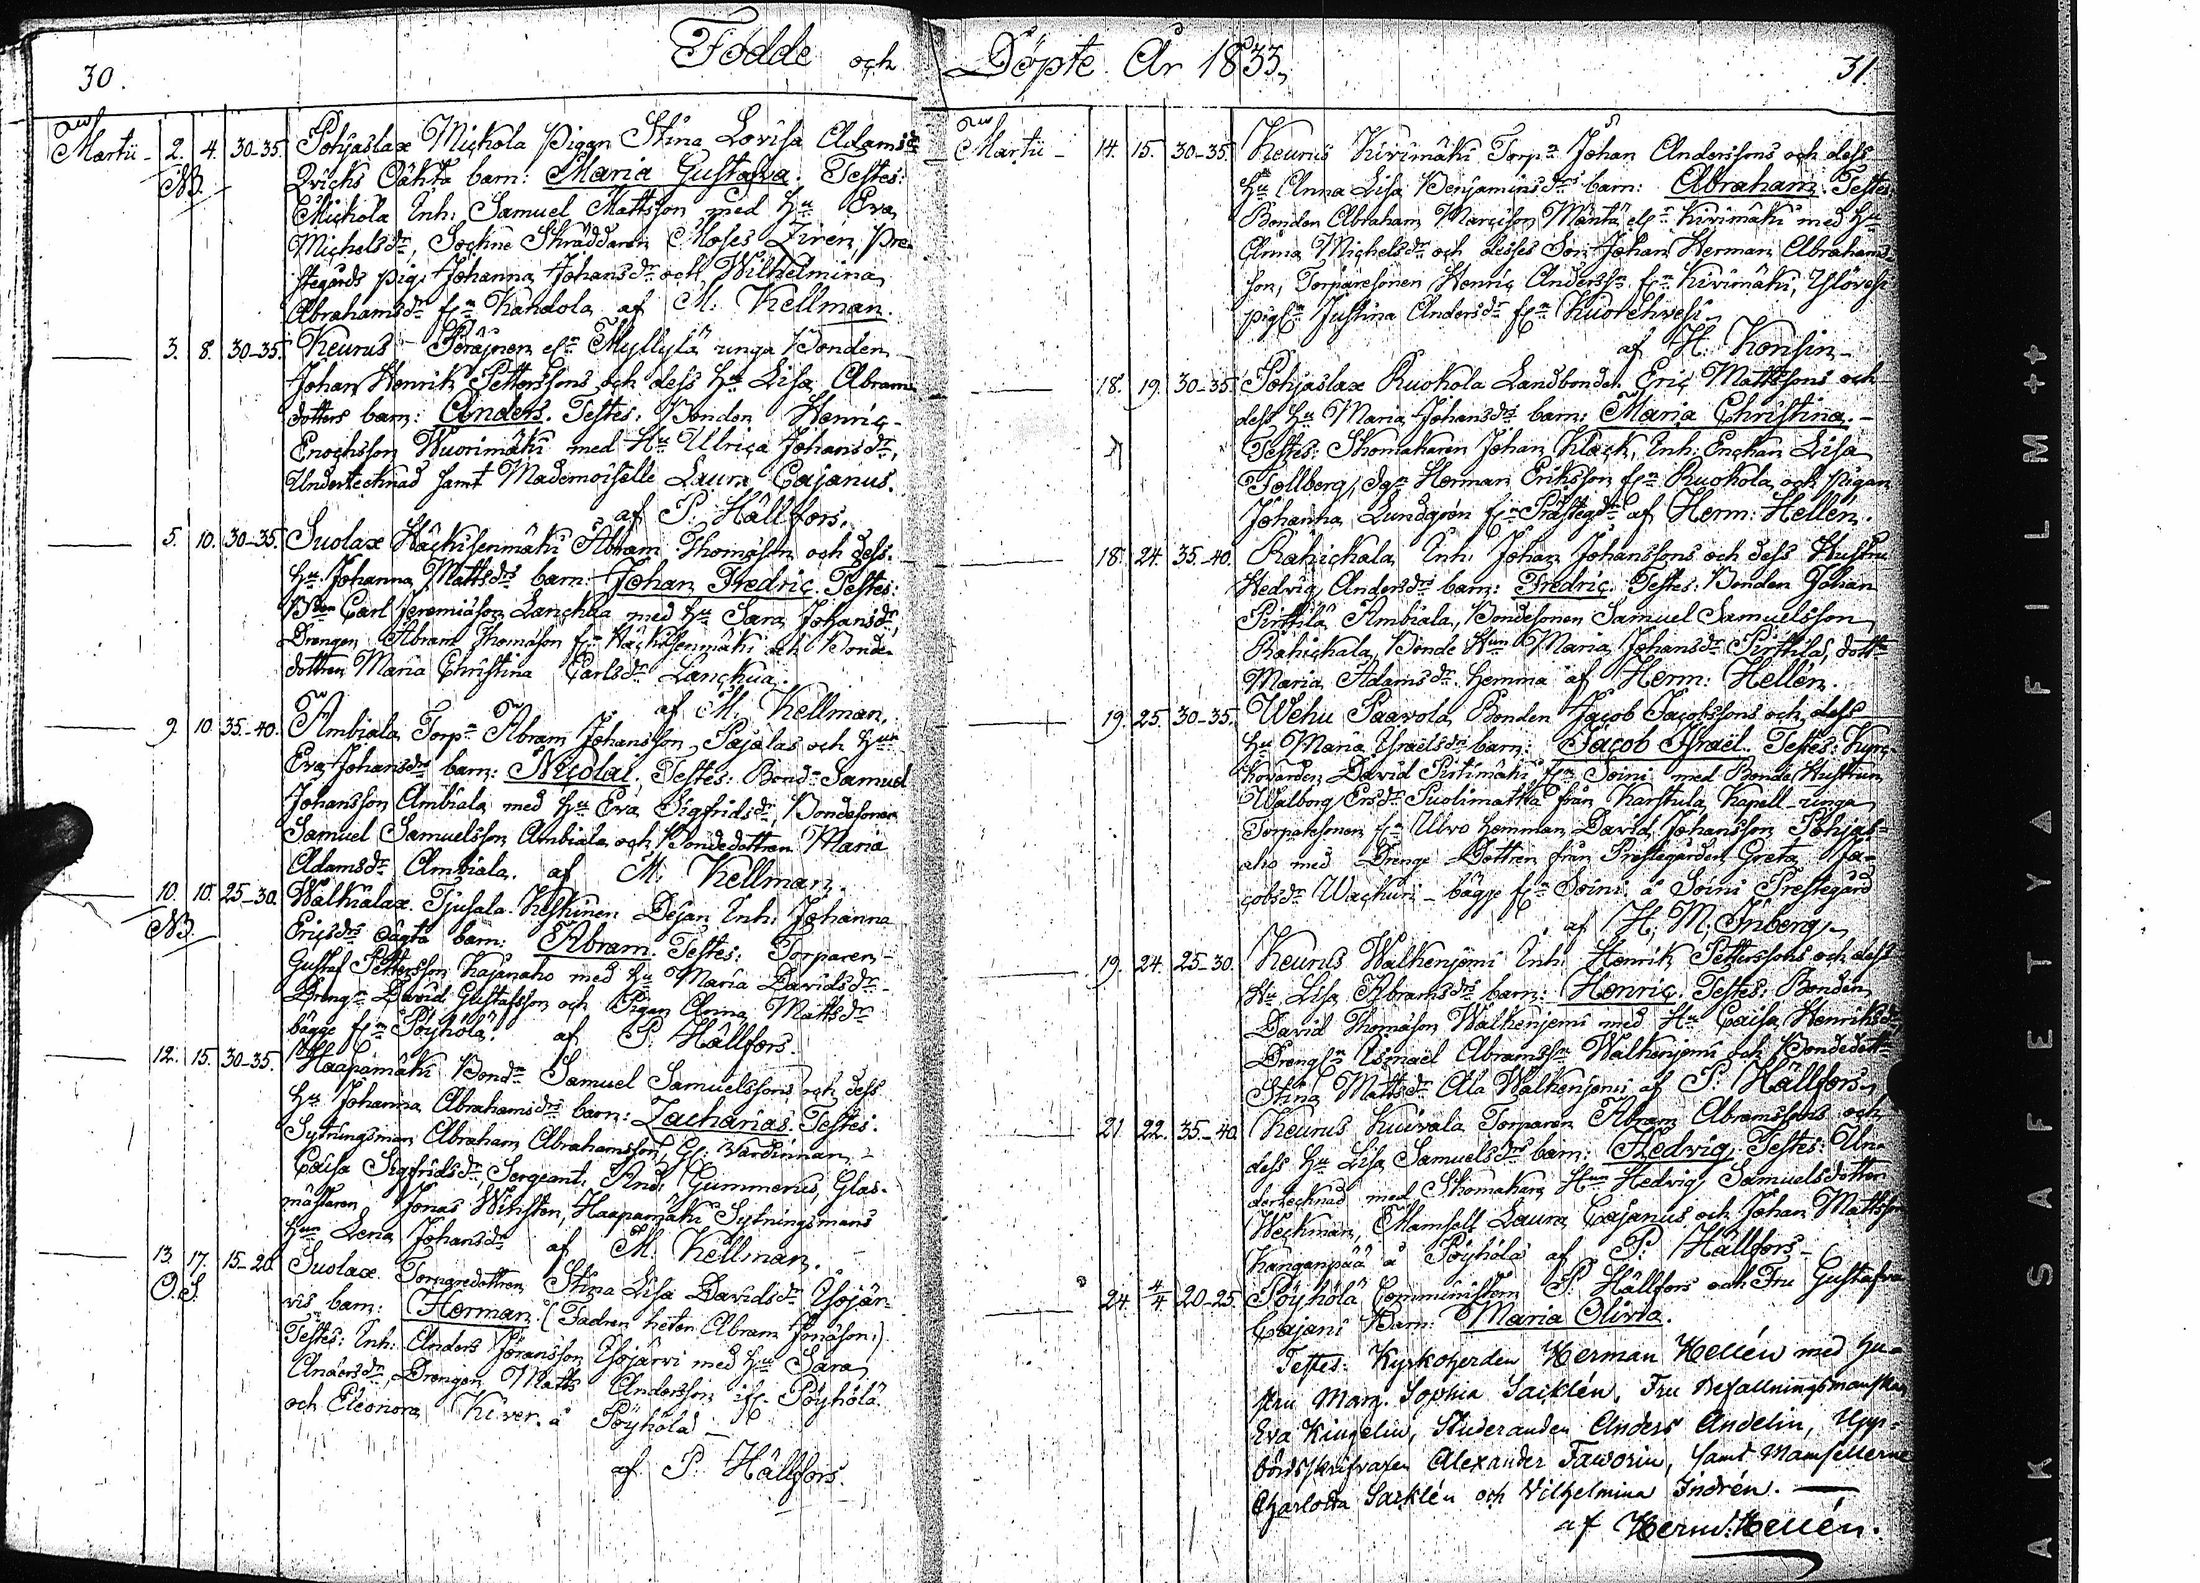 Födde och
30.
Martii 2. 4. 30-35. Pohjaslax Mickola Pigan Stina Lovisa Adamsdr
NB. Qvichs Oäkta barn: Maria Gustava. Testes:
Mickola Inh: Samuel Mattsson med Hu Eva
Michelsdr, Sockne Skräddaren Moses Ziren, Pre-
stegårds pig: Johanna Johansdr och Wilhelmina
Abrahamsdr fr Kandola af M. Kellman.
3. 8. 30-35. Keurus Myllylä unga Bonden
Johan Henrik Petterssons och dess Hu Lisa Abrams
dotters barn: Anders. Testes. Bonden Henric
Enochsson Wuorimäki med Hu Ulrica Johansdr,
Undertecknad samt Mademoiselle Laura Cajanus.
af P. Hällfors.
5. 10. 30-35. Suolax Häckisenmäki Abram Thomason och dess
Hu Johanna Mattsdrs barn: Johan Fredric. Testes:
Carl Jeremiason Lanckua med Hu Sara Johansdr,
Drengen Abram Thomason fr Häckisenmäki och Bonde
dottren Maria Christina Carlsdr Lanckua.
af M. Kellman.
9. 10. 35-40. Ambiala Torpn Abram Johansson Pajalas och Hun
Eva Johansdrs barn: Nicolai. Testes: Bondn Samuel
Johansson Ambiala med Hu Eva Sigfridsdr, Bondesonen
Samuel Samuelsson Ambiala och Bondedottren Maria
Adamsdr Ambiala. af M. Kellman.
10. 10. 25-30. Walkialax Tjusala Keskinen Dejan Inh: Johanna
NB. Ericsdrs oägta barn: Abram. Testes: Torparen
Gustaf Pettersson Kajanaho med Hu Maria Davidsdr
Drengn David Gustafsson och Pigan Anna Mattsdr
bägge fr Pöyhölä. af P. Hällfors.
12. 15. 30-35. Haapamäki Bondn Samuel Samuelssons och dess
Hu Johanna Abrahamsdrs barn: Zacharias. Testes.
Sytningsman Abraham Abrahamsson, Gl: Värdinnan
Caisa Sigfridsdr, Sergeant: And: Gummerus, Glas-
mästaren Jonas Winsten, Haapamäki Sytningsmans
Hun Lena Johansdr af M. Kellman.
13 17. 15-20. Suolax Torparedottren Stina Lisa Davidsdr Isojär-
O.S. vis barn: Herman. (Fadren heter Abram Jonason:)
Testes: Inh: Anders Jöransson Isojärvi med Hu Sara
Andersdr, Drengen Matts Andersson Pöyhölä
och Eleonora Kiver. å Pöyhölä
af P. Hällfors.
Döpte År 1833.
31
Martii 14. 15. 30-35. Keurus Kivimäki Torpn Johan Anderssons och dess
Hu Anna Lisa Benjaminsdrs barn: Abraham. Testes
Bonden Abraham Marcison Mäntä Kivimäki med Hu
Anna Michelsdr och desses Son Johan Herman Abrahams-
son, Torparesonen Henric Anderssn fr Kivimäki, Ylövesi
pign Justina Andersdr fr Kuorehvesi.
af H. Konsin
18. 19. 30-35. Pohjaslax Ruokola Landbonden Eric Mattssons och
dess Hu Maria Johansdrs barn: Maria Christina.
Testes: Skomakaren Johan Klack, Inh: Enckan Lisa
Tollberg, Herman Eriksson fr Ruokola och Pigan
Johanna Lundgren fr Prästegdn af Herm: Hellén.
18. 24. 35-40. Rahickala Inh: Johan Johanssons och dess Hustru
Hedvig Andersdrs barn: Fredric. Testes: Bonden Johan
Pirttilä Ambiala, Bondesonen Samuel Samuelsson
Rahickala, Bonde Hun Maria Johansdr Pirttilä, dottn
Maria Adamsdr hemma af Herm: Hellén.
19. 25. 30-35. Wehu Paavola Bonden Jacob Jacobssons och dess
Hu Maria Israelsdrs barn: Jacob Israël. Testes: Kyrc-
kovärden David Pirtimäki fr Soini med Bonde Hustrun
Walborg Ersdr Puolimatka från Karstula Kapell unga
Torparesonen fr Ulvo hemman David Johansson Pohjas-
aho med Drenge Dottren från Prästegården Greta Ja-
cobsdr Wackuri bägge fr Soini å Soini Prestegård
af H. M. Inberg
19. 24. 25-30. Keurus Walkenjemi Inh: Henrik Petterssons och dess
Hu Lisa Abramsdrs barn: Henric. Testes: Bonden
David Thomason Walkenjemi med Hu Caisa Henriksdr
Drengn Ismael Abramssn Walkenjemi och Bondedottn
Stina Mattsdr Ala Walkenjemi af P. Hällfors
21 22. 35-40. Keurus Kuivala Torparen Abram Abramssons och
dess Hu Lisa Samuelsdrs barn: Hedvig. Testes: Un-
dertecknad med Skomakare Hun Hedvig Samuelsdotter
Weckman, Mamsell Laura Cajanus och Johan Mattssn
Kanganpää å Pöyhölä af P: Hällfors
24. 4/4 20-25. Pöyhölä Comministern P. Hällfors och Fru Gustafva
Cajani Barn: Maria Olivia.
Testes: Kyrkoherden Herman Hellén med Hu-
stru Marg. Sophia Sacklén, Fru Befallningsmanskan
Eva Kingelin, Studeranden Anders Andelin, Upp-
bördsskrifvaren Alexander Faworin, samt Mamsellerne
Charlotta Sacklén och Vilhelmina Indrén.
af Hermd: Hellén.
AK SAFETY A FILM ++